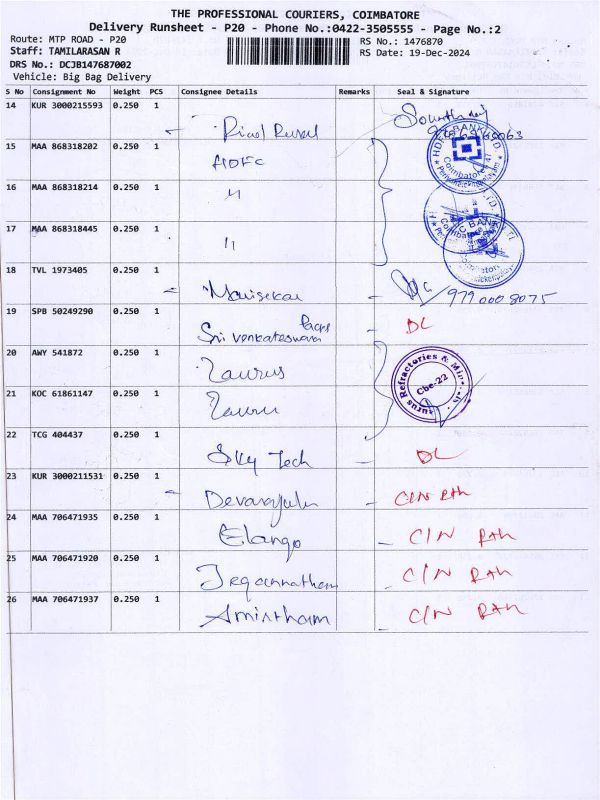 THE PROFESSIONAL COURIERS, COIMBATORE
Delivery Runsheet - P20 - Phone No.:0422-3505555 - Page No.:2
Route: MTP ROAD - P20
RS No.: 1476870
Staff: TAMILARASAN R
RS Date: 19-Dec-2024
DRS No.: DCJB147687002
Vehicle: Big Bag Delivery
S No Consignment No Weight PCS Consignee Details Remarks Seal & Signature
14 KUR 3000215593 0.250 1
15 MAA 868318202 0.250 1 HDFC HDFC BANK LTD. Coimbatore
16 MAA 868318214 0.250 1 "
17 MAA 868318445 0.250 1 "
18 TVL 1973405 0.250 1 Manisekar 9790008075
19 SPB 50249290 0.250 1 Sri Venkateswara DL
20 AWY 541872 0.250 1 Taurus Refractories & Cbe-22
21 KOC 61861147 0.250 1
22 TCG 404437 0.250 1 Sky Tech DL
23 KUR 3000211531 0.250 1 Devarajulu C/N
24 MAA 706471935 0.250 1 Elango C/N
25 MAA 706471920 0.250 1 Jegannathan C/N
26 MAA 706471937 0.250 1 Amirtham C/N